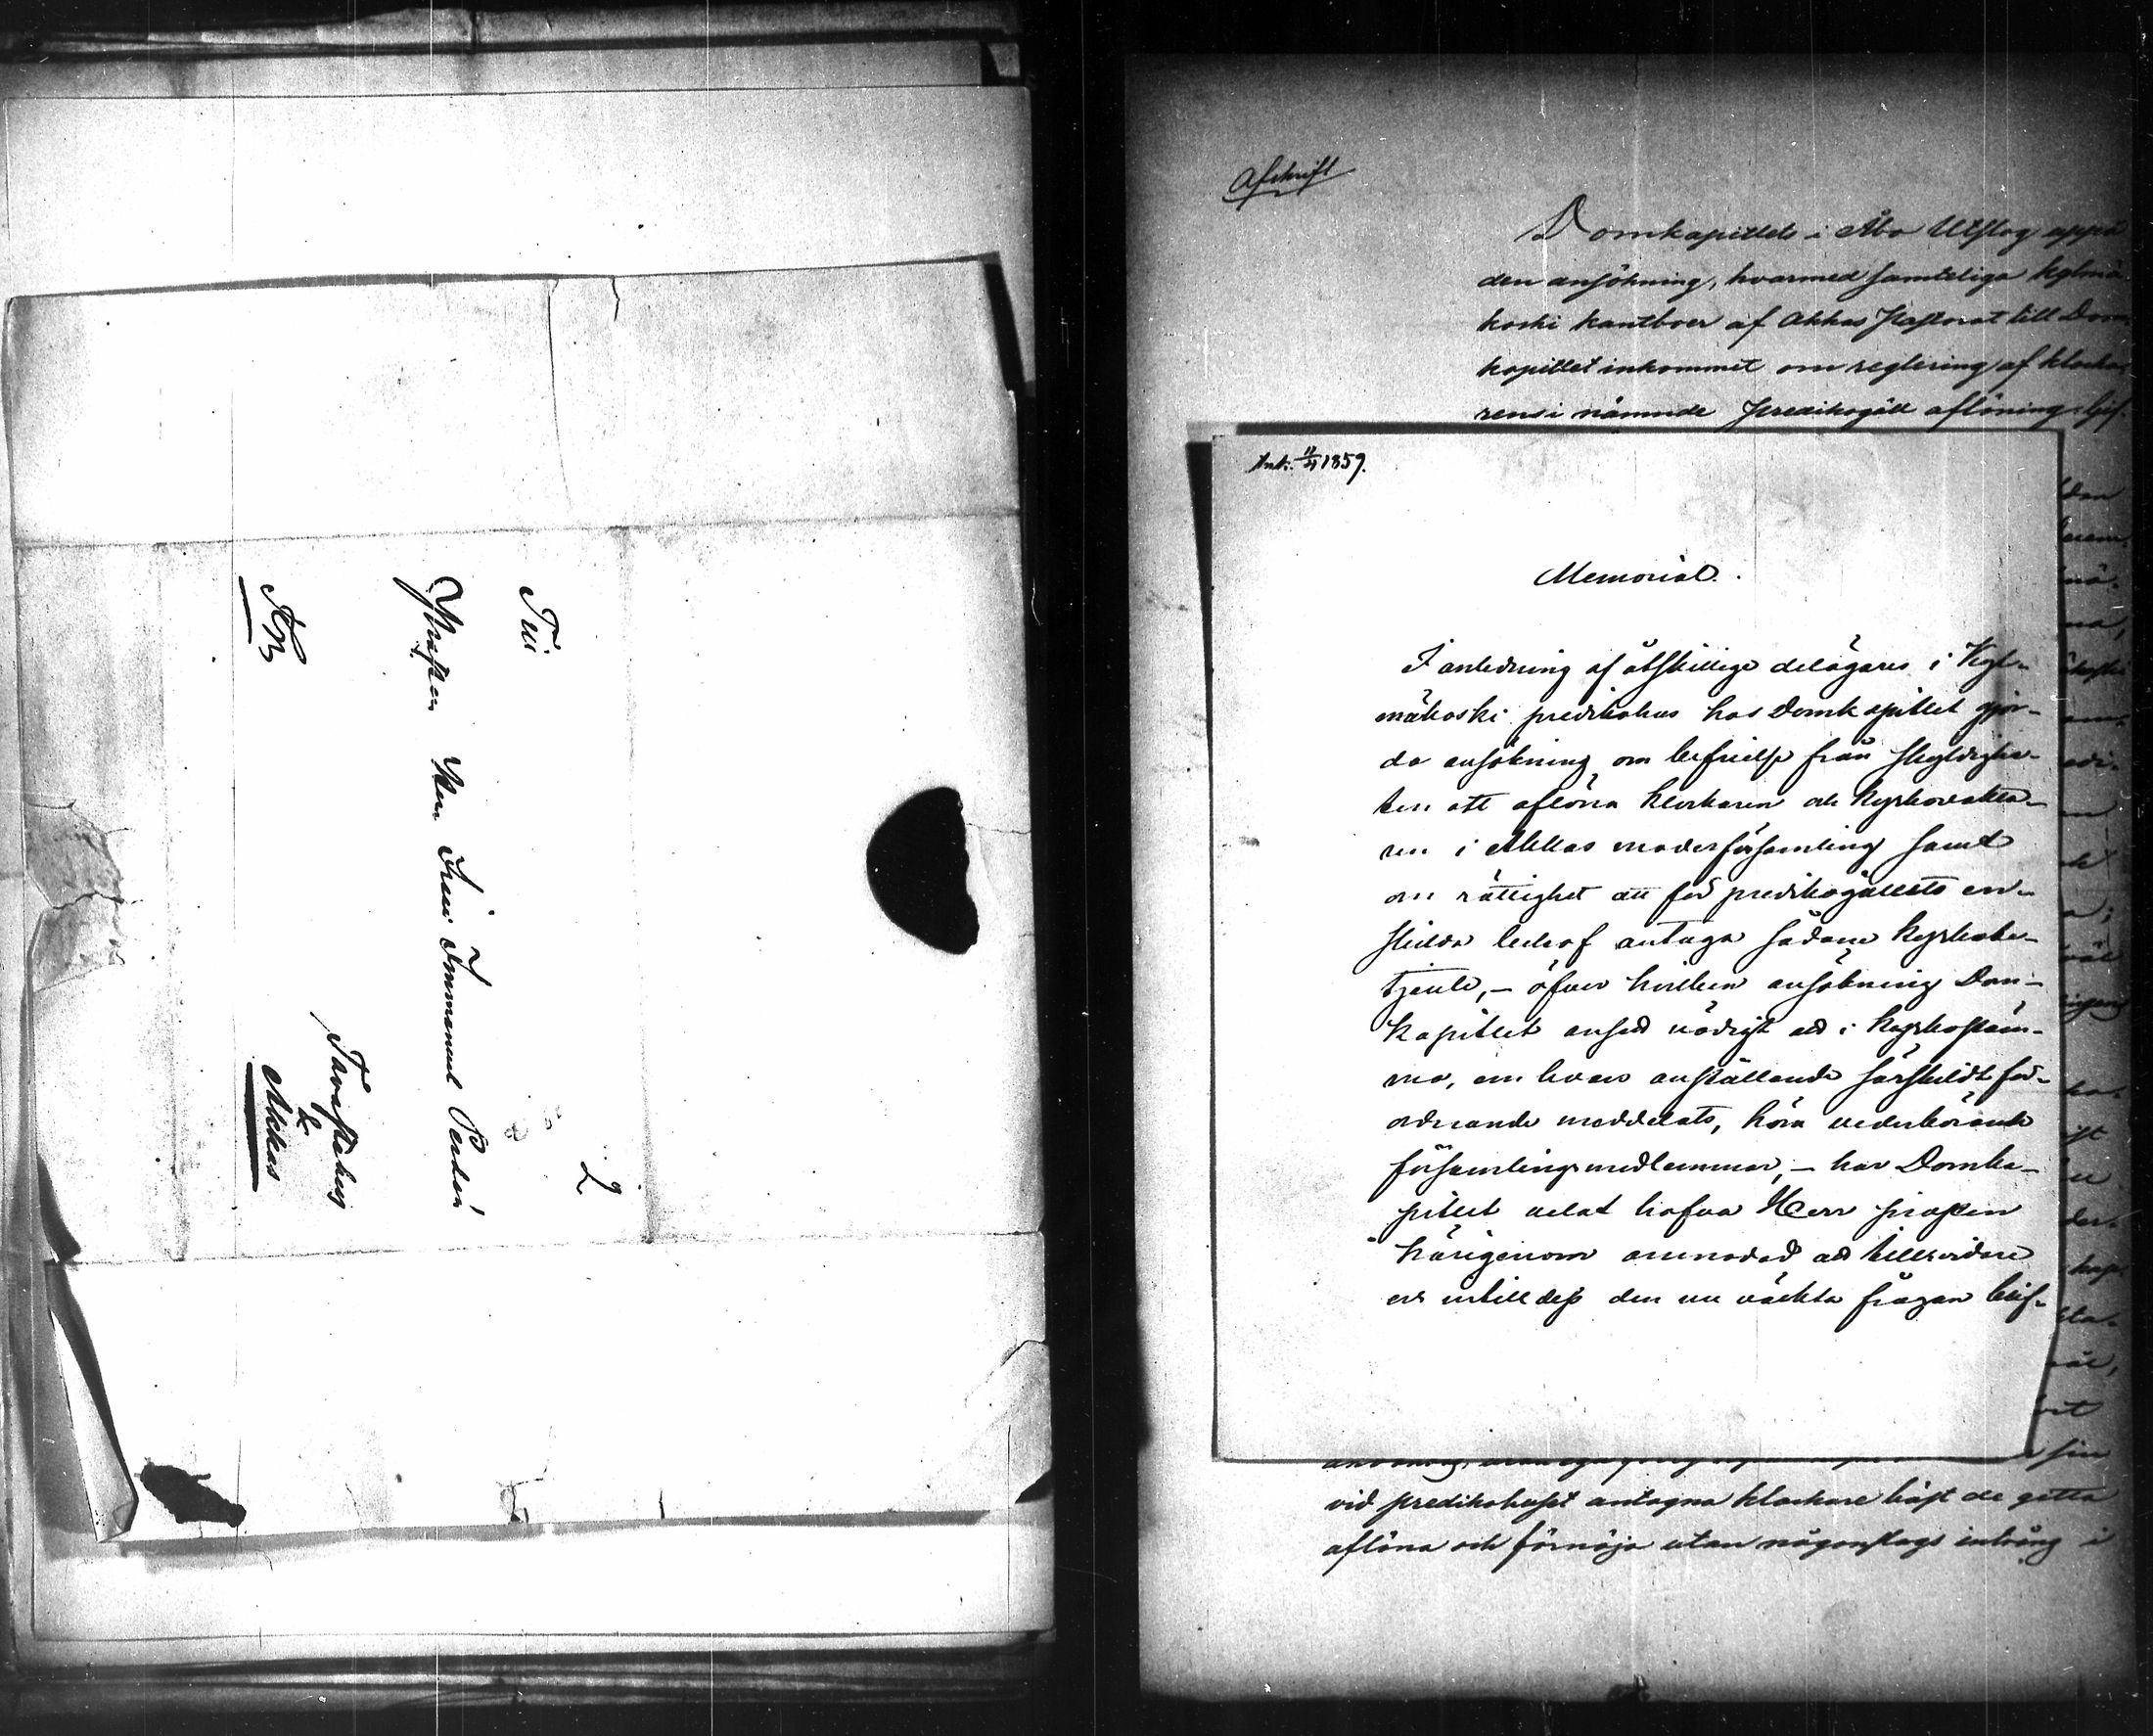 Till
Prosten Herr Frans Immanuel Petter
Tavastehus
&
Akkas
2
Afskrift
Domkapitlets i Åbo Utslag uppå
den ansökning, hvarmed samtelige Kylmä
koski kantboer af Akkas Pastorat till Dom-
kapitlet inkommit om reglering af klocka-
rens i nämnde predikogäll aflöning; Gif-
Ank. 11/4 1859.
Memorial.
I anledning af åtskillige delägares i Kyl-
mäkoski predikohus hos Domkapitlet gjor-
da ansökning om befrielse från skyldighe-
ten att aflöna klockaren och kyrkovakta-
ren i Akkas moderförsamling samt
om rättighet att för predikogällets en-
skilda behof antaga sådane kyrkobe-
tjente, – öfver hvilken ansökning Dom-
kapitlet ansett nödigt att i kyrkostäm-
ma, om hvars anställande särskildt för-
ordnande meddelats, höra vederbörande
församlingsmedlemmar, – har Domka-
pitlet velat hafva Herr Prosten
härigenom anmodad att tillsvidare
och intill dess den nu väckta frågan blif-
vid predikohuset antagna klockare bäst de gitta
aflöna och förnöja utan någonslags intrång i